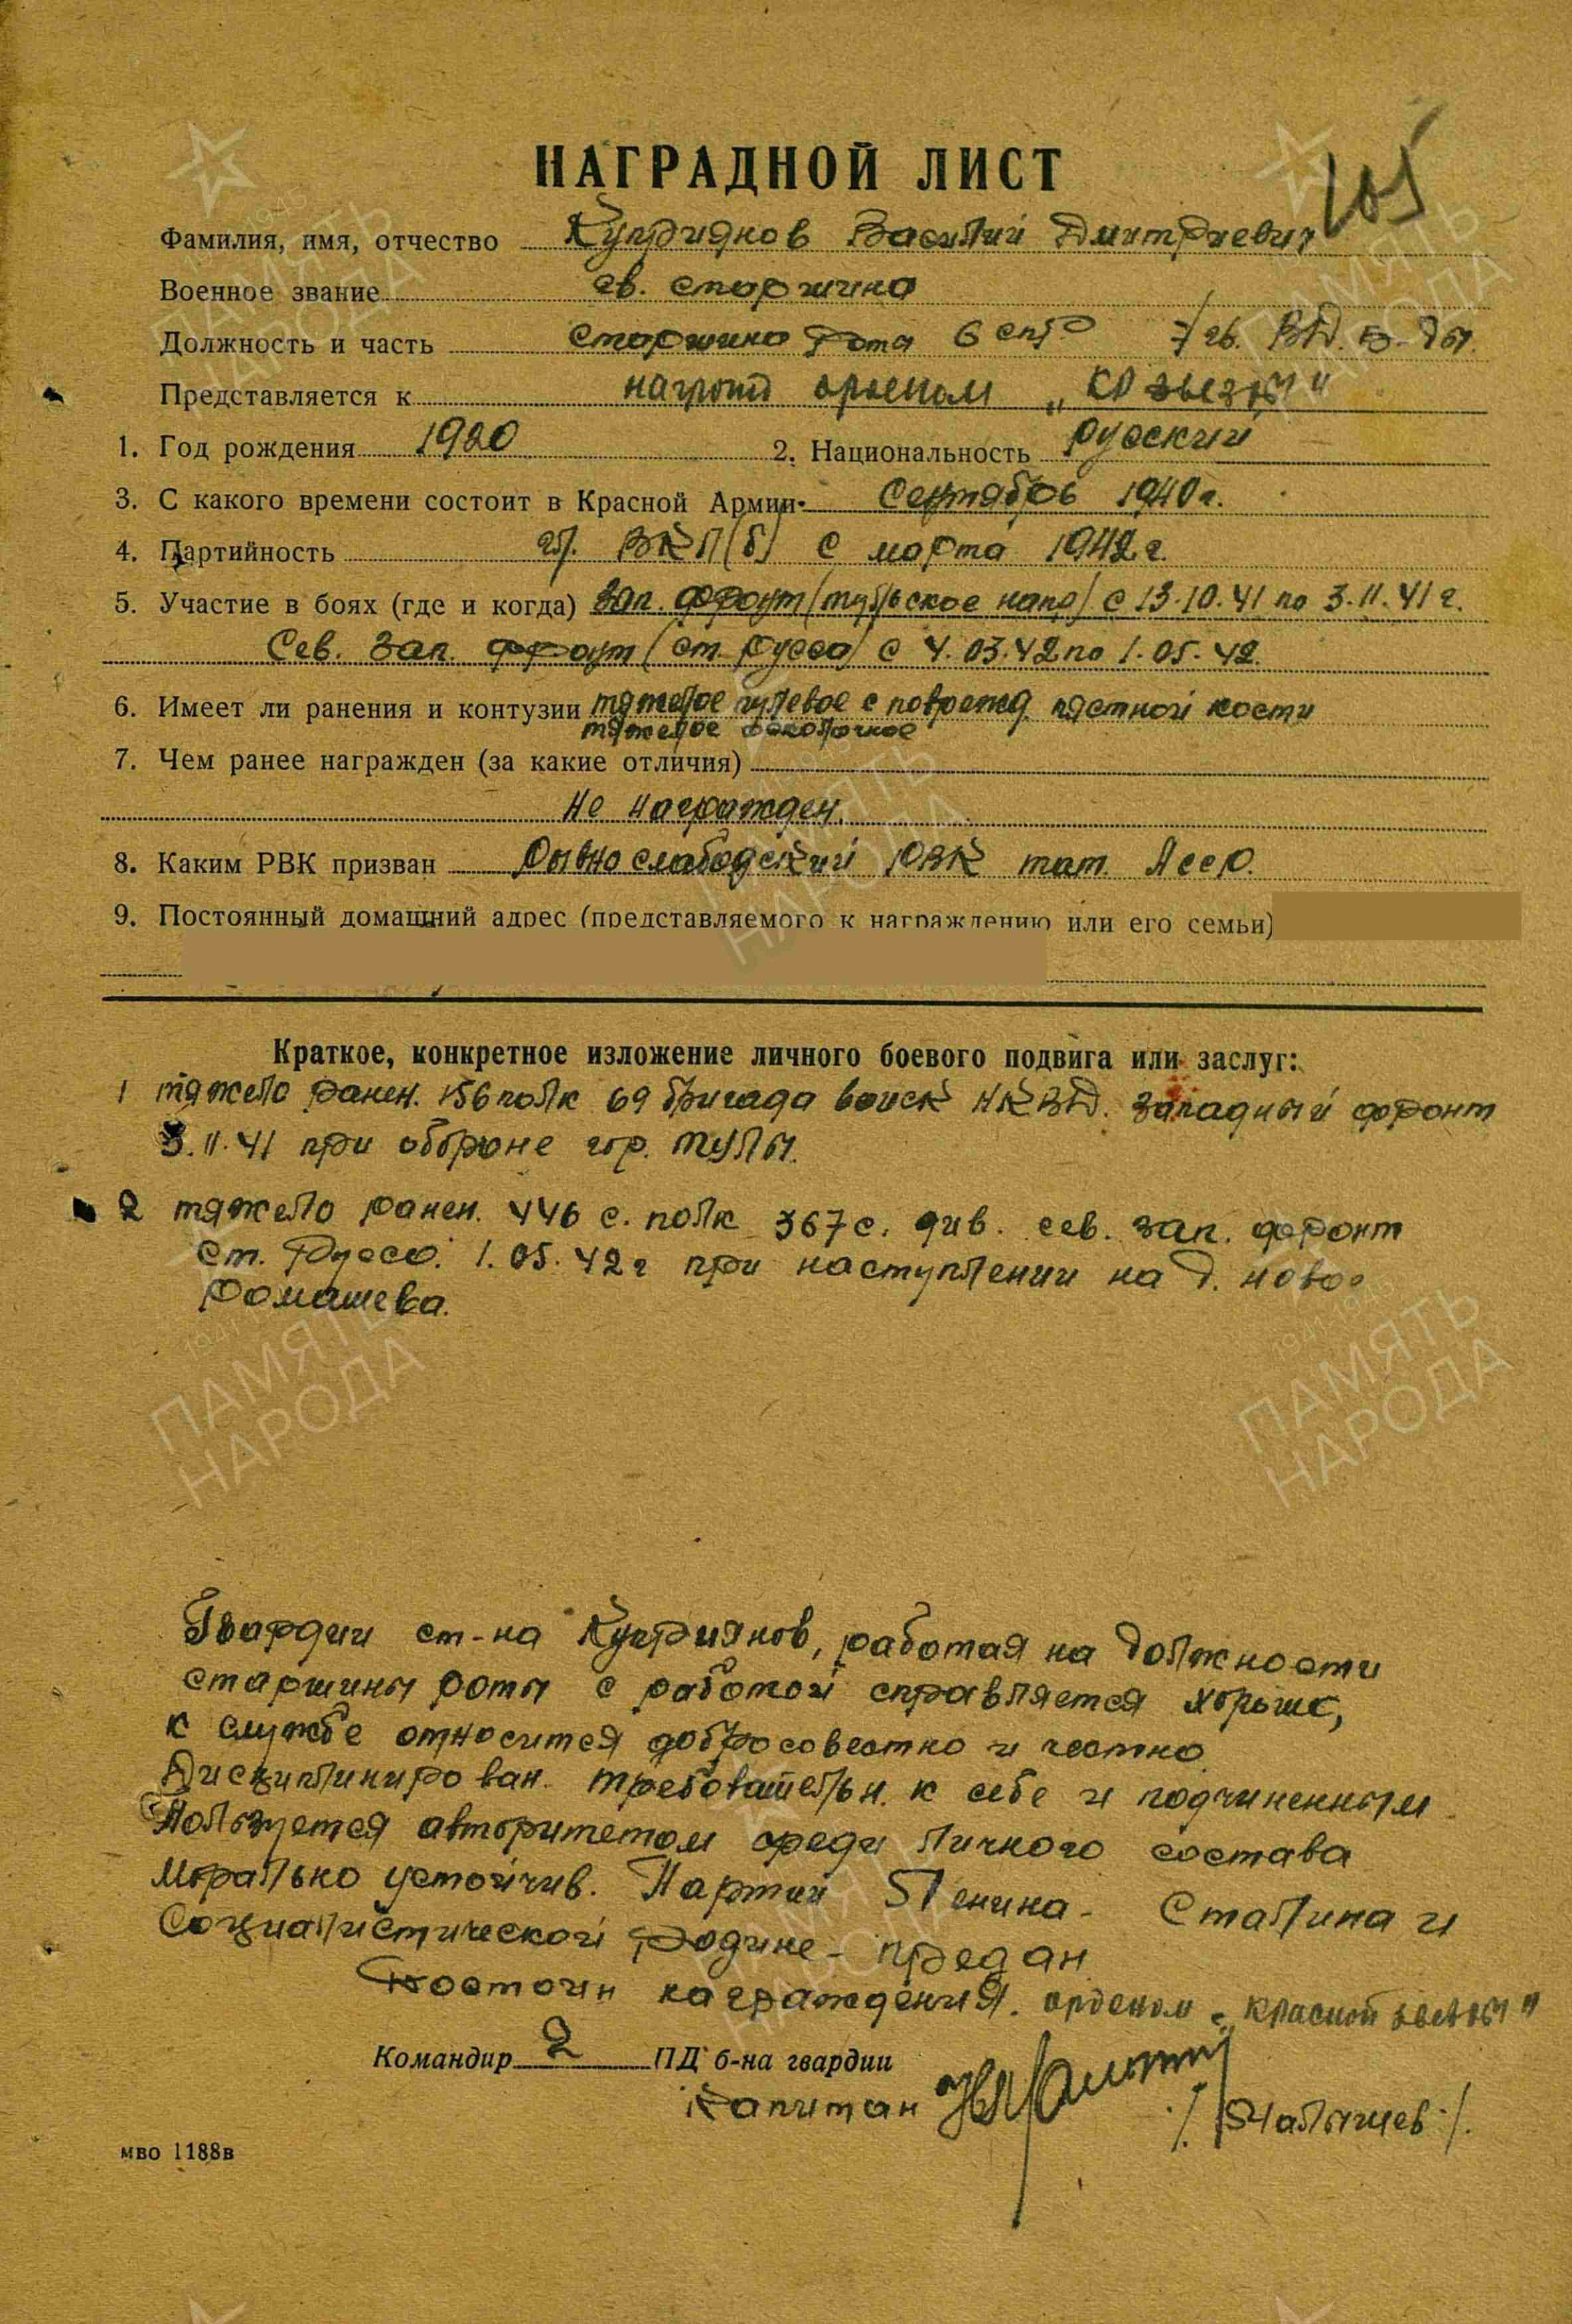 105
НАГРАДНОЙ ЛИСТ
Фамилия, имя, отчество Куприянов Василий Дмитриевич
Военное звание гв. старшина
Должность и часть старшина рота 6 7 гв. ВД. б-ды.
Представляется к орденом „Кр звезды"
1. Год рождения 1920 2. Национальность русский
3. С какого времени состоит в Красной Армии Сентябрь 1940 г.
4. Партийность чл. ВКП(б) с марта 1942 г.
5. Участие в боях (где и когда) Зап. фронт (тульское напр) с 13.10.41 по 3.11.41 г.
Сев. Зап. фронт (ст. русса) с 4.03.42 по 1.05.42.
6. Имеет ли ранения и контузии тяжелое пулевое с поврежд. пястной кости
тяжелое осколочное
7. Чем ранее награжден (за какие отличия)
не награжден.
8. Каким РВК призван Рывнослабодский РВК тат. Асср.
9. Постоянный домашний адрес (представляемого к награждению или его семьи)
Краткое, конкретное изложение личного боевого подвига или заслуг:
1 тяжело ранен. 156 полк 69 бригада войск НКВД. западный фронт
3.11.41 при обороне гор. Тулы.
2 тяжело ранен. 446 с. полк 367 с. див. сев. зап. фронт
ст. Русса. 1.05.42 г при наступлении на д. ново
Ромашева.
Гвардии ст-на Куприянов, работая на должности
старшины роты с работой справляется хорошо,
к службе относится добросовестно и честно
Дисциплинирован. требовательн. к себе и подчиненным.
Пользуется авторитетом среди личного состава
Морально устойчив. Партии Ленина - Сталина и
Социалистической родине - предан
Достоин награждения. орденом „Красной звезды"
Командир 2 ПД б-на гвардии
Капитан
мво 1188в
ПАМЯТЬ НАРОДА
1941-1945